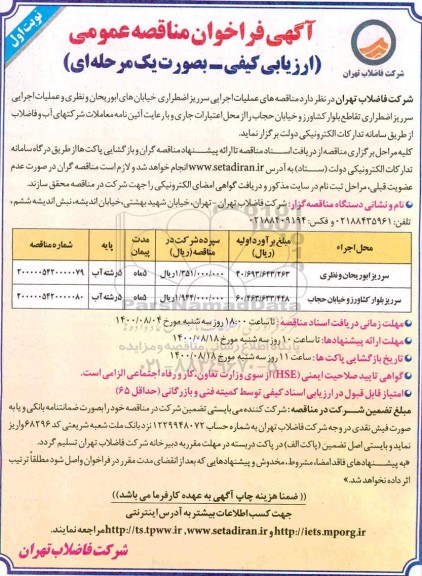 نوبت اول
آگهی فراخوان مناقصه عمومی
(ارزیابی کیفی ــ بصورت یک مرحله‌ای)
شرکت فاضلاب تهران
شرکت فاضلاب تهران در نظر دارد مناقصه های عملیات اجرایی سرریز اضطراری خیابان های ابوریحان و نظری و عملیات اجرایی
سرریز اضطراری تقاطع بلوار کشاورز و خیابان حجاب را از محل اعتبارات جاری و با رعایت آئین نامه معاملات شرکتهای آب و فاضلاب
از طریق سامانه تدارکات الکترونیکی دولت برگزار نماید.
کلیه مراحل برگزاری مناقصه از دریافت اسناد مناقصه تا ارائه پیشنهاد مناقصه گران و بازگشایی پاکت ها از طریق درگاه سامانه
تدارکات الکترونیکی دولت (ستاد) به آدرس www.setadiran.ir انجام خواهد شد و لازم است مناقصه گران در صورت عدم
عضویت قبلی، مراحل ثبت نام در سایت مذکور و دریافت گواهی امضای الکترونیکی را جهت شرکت در مناقصه محقق سازند.
نام و نشانی دستگاه مناقصه گزار: شرکت فاضلاب تهران - تهران، خیابان شهید بهشتی، خیابان اندیشه، نبش اندیشه ششم،
تلفن: ۰۲۱۸۸۴۳۵۹۶۱ و فکس: ۰۲۱۸۸۴۰۹۱۹۴
محل اجراء	مبلغ برآورد اولیه (ریال)	سپرده شرکت در مناقصه (ریال)	مدت پیمان	پایه	شماره مناقصه
سرریز ابوریحان و نظری	۴۰/۶۹۳/۶۴۳/۲۶۳	۱/۳۵۱/۰۰۰/۰۰۰ ریال	۵ماه	۵رشته آب	۲۰۰۰۰۰۵۴۲۰۰۰۰۰۷۹
سرریز بلوار کشاورز و خیابان حجاب	۶۰/۴۶۳/۶۳۳/۴۴۸	۱/۹۴۴/۰۰۰/۰۰۰ ریال	۵ماه	۵رشته آب	۲۰۰۰۰۰۵۴۲۰۰۰۰۰۸۰
مهلت زمانی دریافت اسناد مناقصه: تا ساعت ۱۸:۰۰ روز سه شنبه مورخ ۱۴۰۰/۰۸/۰۴
مهلت ارائه پیشنهادها: تا ساعت ۱۰ روز سه شنبه مورخ ۱۴۰۰/۰۸/۱۸
تاریخ بازگشایی پاکت ها: ساعت ۱۱ روز سه شنبه مورخ ۱۴۰۰/۰۸/۱۸
گواهی تایید صلاحیت ایمنی (HSE) از سوی وزارت تعاون، کار و رفاه اجتماعی الزامی است.
امتیاز قابل قبول در ارزیابی اسناد کیفی توسط کمیته فنی و بازرگانی (حداقل ۶۵)
مبلغ تضمین شرکت در مناقصه: شرکت کننده می بایستی تضمین شرکت در مناقصه خود را بصورت ضمانتنامه بانکی و یا به
صورت فیش نقدی در وجه شرکت فاضلاب تهران به شماره حساب ۱۲۲۹۹۴۸۰۷۲ نزد بانک ملت شعبه شریعتی کد ۶۸۲۹۶ واریز
نماید و بایستی اصل تضمین (پاکت الف) در پاکت دربسته در مهلت مقرر به دبیرخانه شرکت فاضلاب تهران تسلیم گردد.
«به پیشنهادهای فاقد امضاء، مشروط، مخدوش و پیشنهادهایی که بعد از انقضای مدت مقرر در فراخوان واصل شود مطلقاً ترتیب
اثر داده نخواهد شد.»
(( ضمناً هزینه چاپ آگهی به عهده کارفرما می باشد))
جهت کسب اطلاعات بیشتر به آدرس اینترنتی
http://iets.mporg.ir و www.setadiran.ir, http://ts.tpww.ir مراجعه نمایند.
شرکت فاضلاب تهران